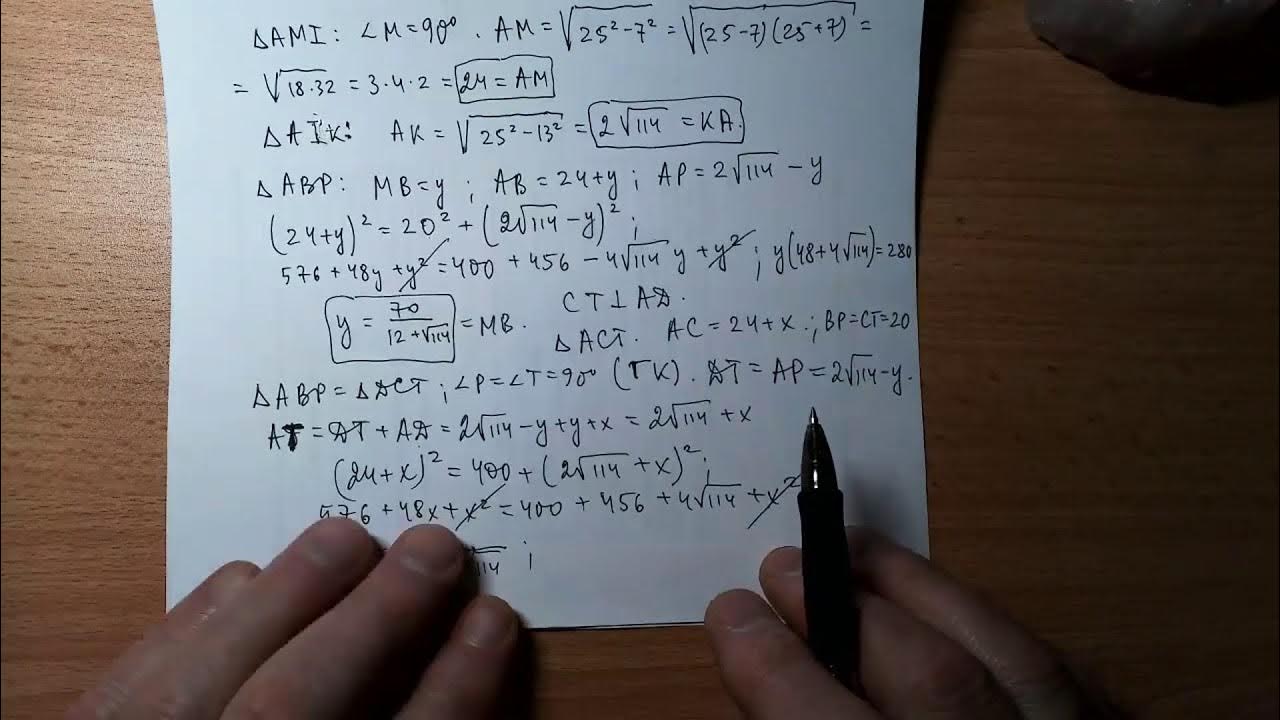 ΔAMI: ∠M=90°. AM=√(25²-7²)=√((25-7)(25+7))=
= √(18·32) = 3·4·2 = 24 = AM
ΔAIK: AK = √(25²-13²) = 2√114 = KA.
ΔABP: MB=y ; AB=24+y ; AP=2√114 - y
(24+y)²=20²+(2√114-y)²;
576+48y+y²=400+456-4√114 y+y² ; y(48+4√114)=280
y = 70/(12+√114) = MB. CT⊥AD.
ΔACT. AC=24+x.; BP=CT=20
ΔABP=ΔDCT ; ∠P=∠T=90° (ГК). DT=AP=2√114-y.
AT = DT+AD=2√114-y+y+x=2√114+x
(24+x)²=400+(2√114+x)²;
576+48x+x²=400+456+4√114+x²
√114 ;